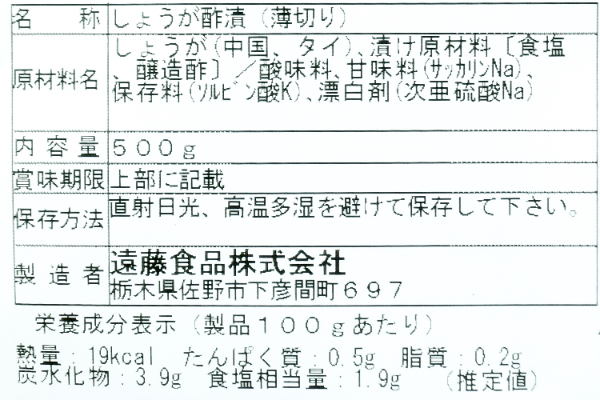 名称 しょうが酢漬（薄切り）
原材料名 しょうが(中国、タイ)、漬け原材料〔食塩
、醸造酢〕／酸味料、甘味料(ｻｯｶﾘﾝNa)、
保存料(ｿﾙﾋﾞﾝ酸K)、漂白剤(次亜硫酸Na)
内容量 ５００ｇ
賞味期限 上部に記載
保存方法 直射日光、高温多湿を避けて保存して下さい。
製造者 遠藤食品株式会社
栃木県佐野市下彦間町６９７
栄養成分表示（製品１００ｇあたり）
熱量：19kcal たんぱく質：0.5g 脂質：0.2g
炭水化物：3.9g 食塩相当量：1.9g （推定値）